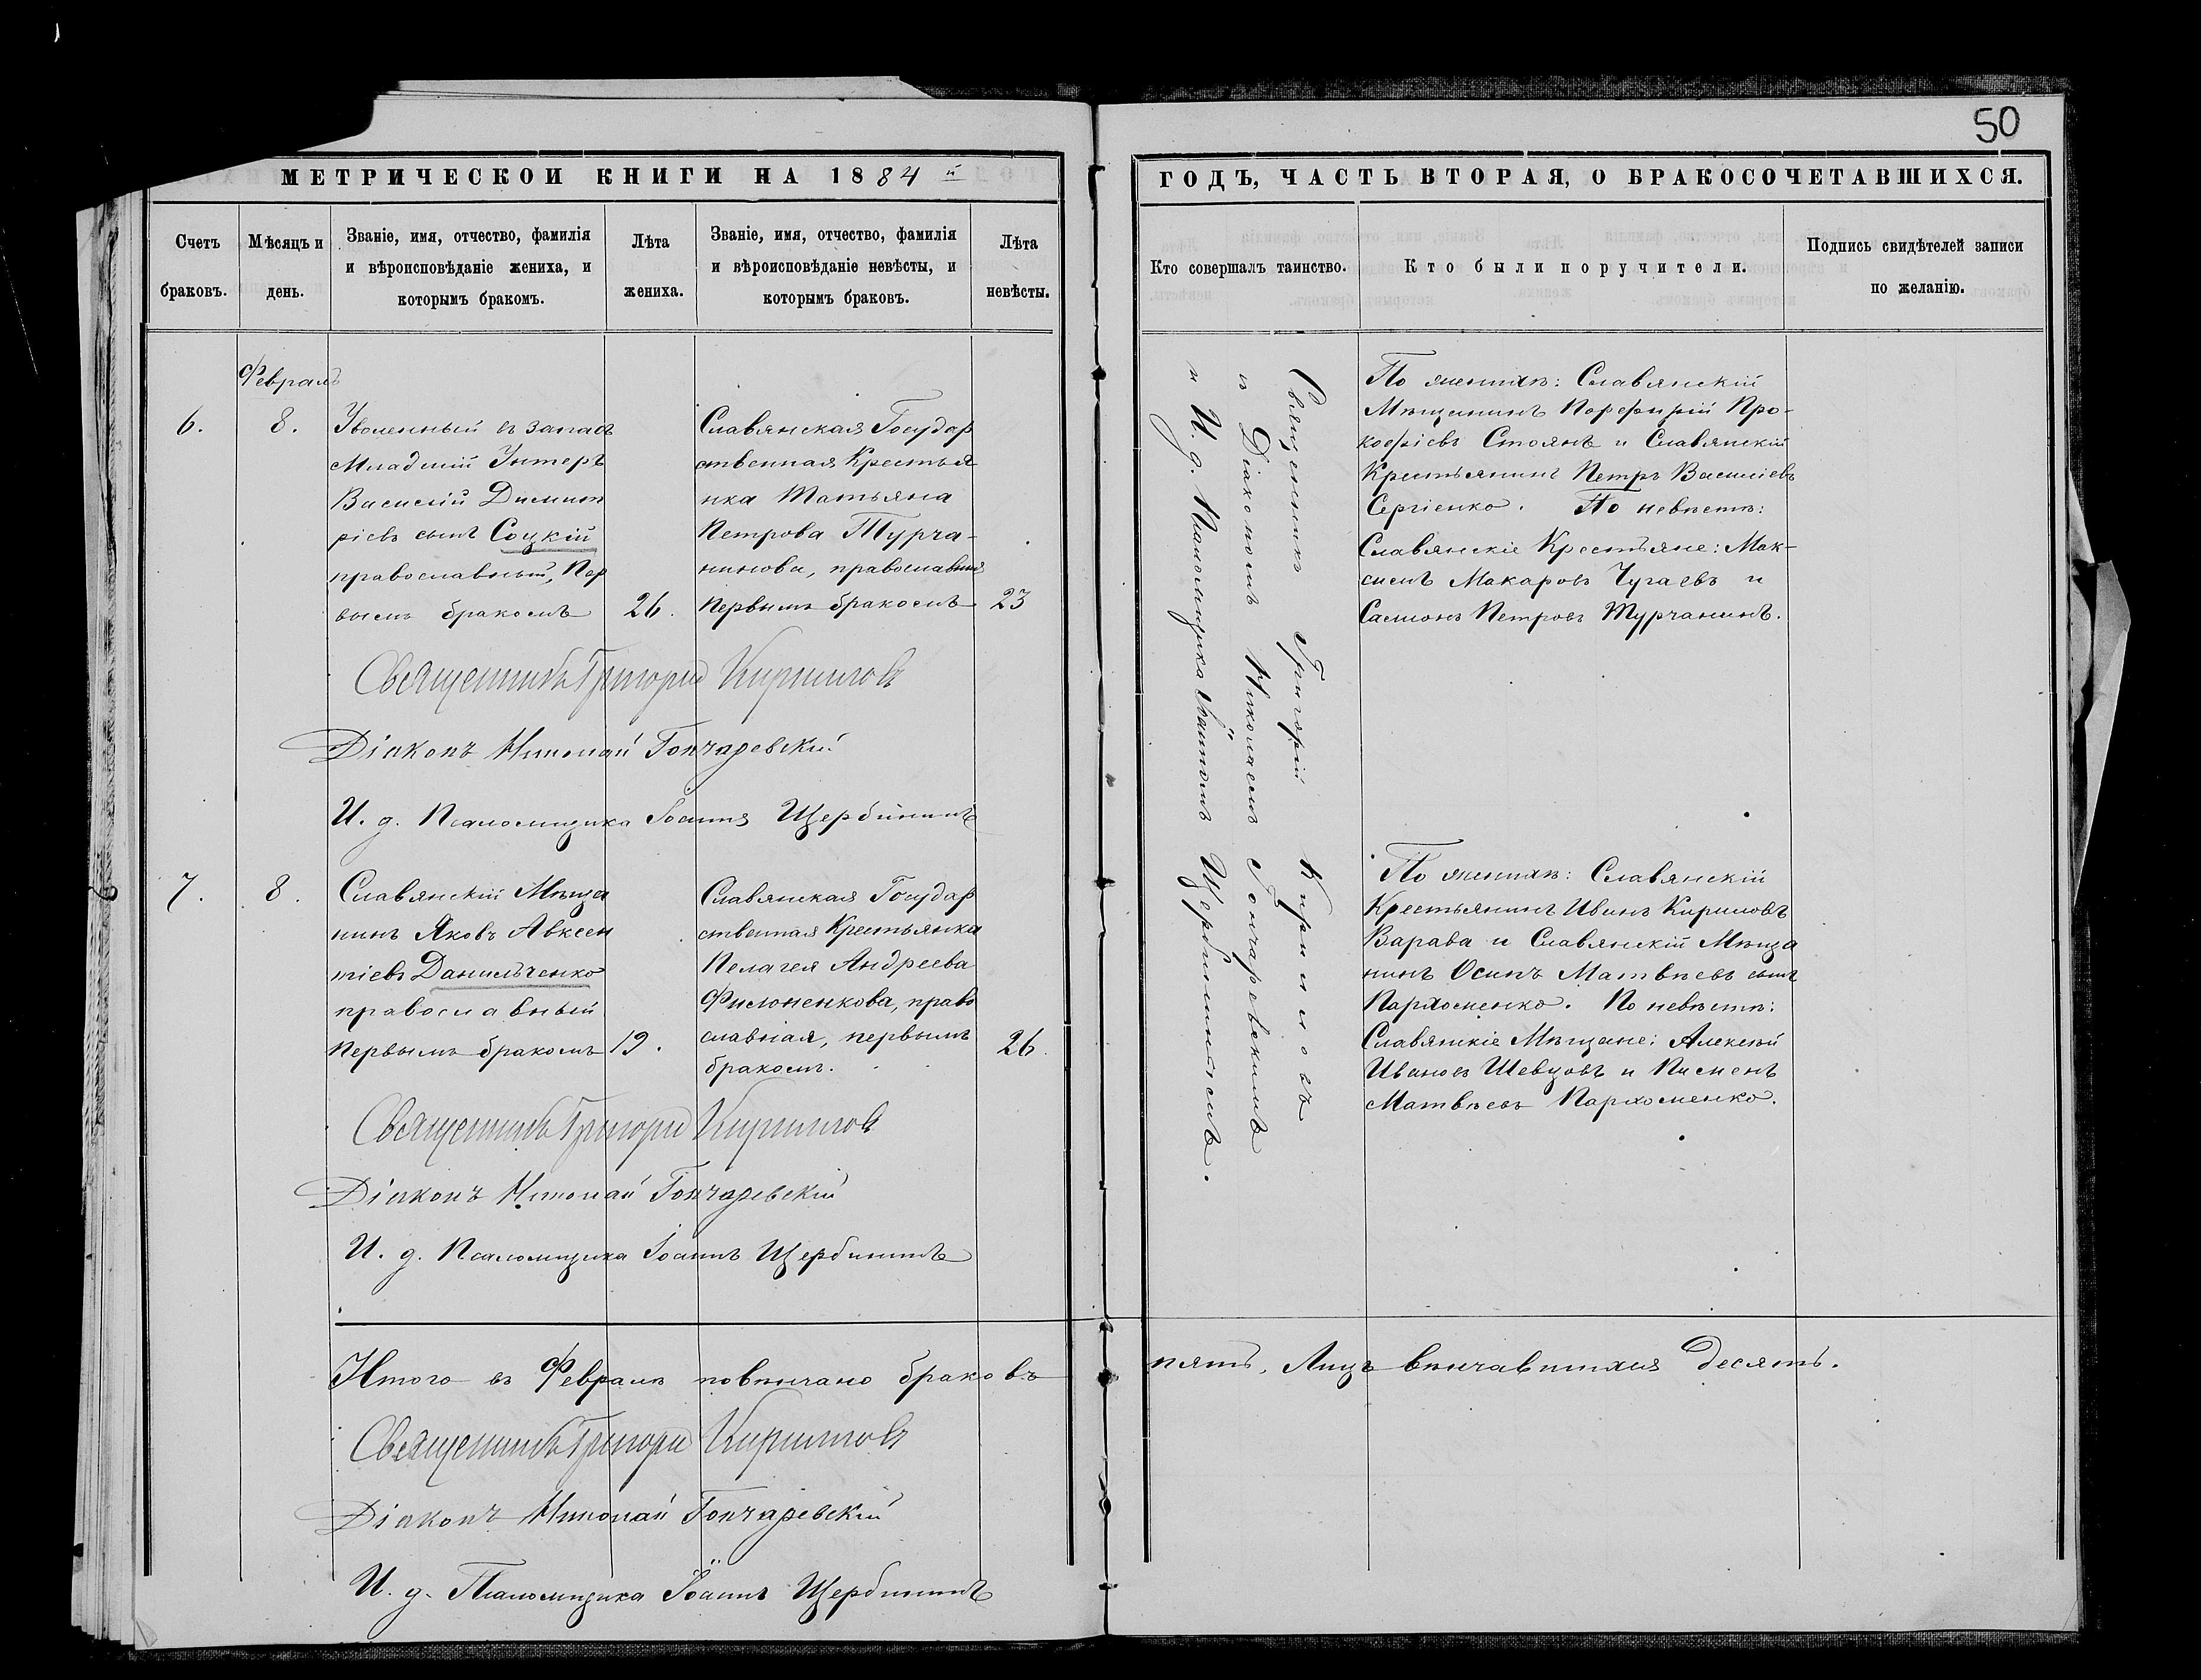 50
МЕТРИЧЕСКОЙ КНИГИ НА 1884 й
ГОДЪ, ЧАСТЬ ВТОРАЯ, О БРАКОСОЧЕТАВШИХСЯ.
Счетъ
браковъ.
Мѣсяцъ и
день.
Званіе, имя, отчество, фамилія
и вѣроисповѣданіе жениха, и
которымъ бракомъ.
Лѣта
жениха.
Званіе, имя, отчество, фамилія
и вѣроисповѣданіе невѣсты, и
которымъ браковъ.
Лѣта
невѣсты.
Кто совершалъ таинство.
Кто были поручители.
Подпись свидѣтелей записи
по желанію.
Февраль
6.
8.
Уволенный въ запасъ
Младшій Унтеръ
Василій Димит
ріевъ сынъ Соцкій
православный, Пер
вымъ бракомъ
26.
Славянская Государ
ственная Крестья
нка Татьяна
Петрова Турча-
нинова, православная
Первымъ бракомъ
23
Священникъ Григорій Кириловъ
и Діакономъ Николаемъ Гончаревскимъ
и И. д. Псаломщика Іоанномъ Щербининымъ.
По женихѣ: Славянскій
Мѣщанинъ Порфирій Про-
кофіевъ Стоянъ и Славянскій
Крестьянинъ Петръ Василіевъ
Сергіенко. По невѣстѣ:
Славянскіе Крестьяне: Мак-
симъ Макаровъ Чугаевъ и
Самсонъ Петровъ Турчанинъ.
Священникъ Григорій Кириловъ
Діаконъ Николай Гончаревскій
И. д. Псаломщика Іоаннъ Щербининъ
7.
8.
Славянскій Мѣща
нинъ Яковъ Авксен
тіевъ Данильченко
православный
Первымъ бракомъ
19.
Славянская Государ
ственная Крестьянка
Пелагея Андреева
Филоненкова, право
славная, первымъ
бракомъ.
26.
По женихѣ: Славянскій
Крестьянинъ Иванъ Кириловъ
Варава и Славянскій Мѣща
нинъ Осипъ Матвѣевъ сынъ
Пархоменко. По невѣстѣ:
Славянскіе Мѣщане: Алексѣй
Ивановъ Шевцовъ и Пименъ
Матвѣевъ Пархоменко.
Священникъ Григорій Кириловъ
Діаконъ Николай Гончаревскій
И. д. Псаломщика Іоаннъ Щербининъ
Итого въ Февралѣ повѣнчано браковъ
пять, Лицъ вѣнчавшихся десять.
Священникъ Григорій Кириловъ
Діаконъ Николай Гончаревскій
И. д. Псаломщика Іоаннъ Щербининъ